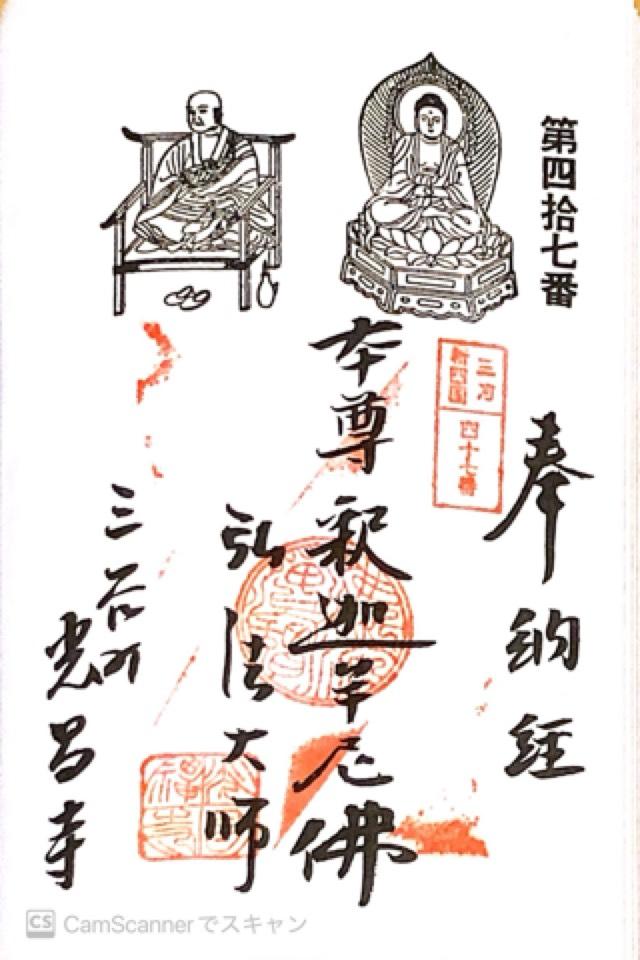 第四拾七番
奉納経
三河
新四国
四十七番
本尊釈迦牟尼佛
弘法大師
三谷町
光昌寺
CS CamScannerでスキャン